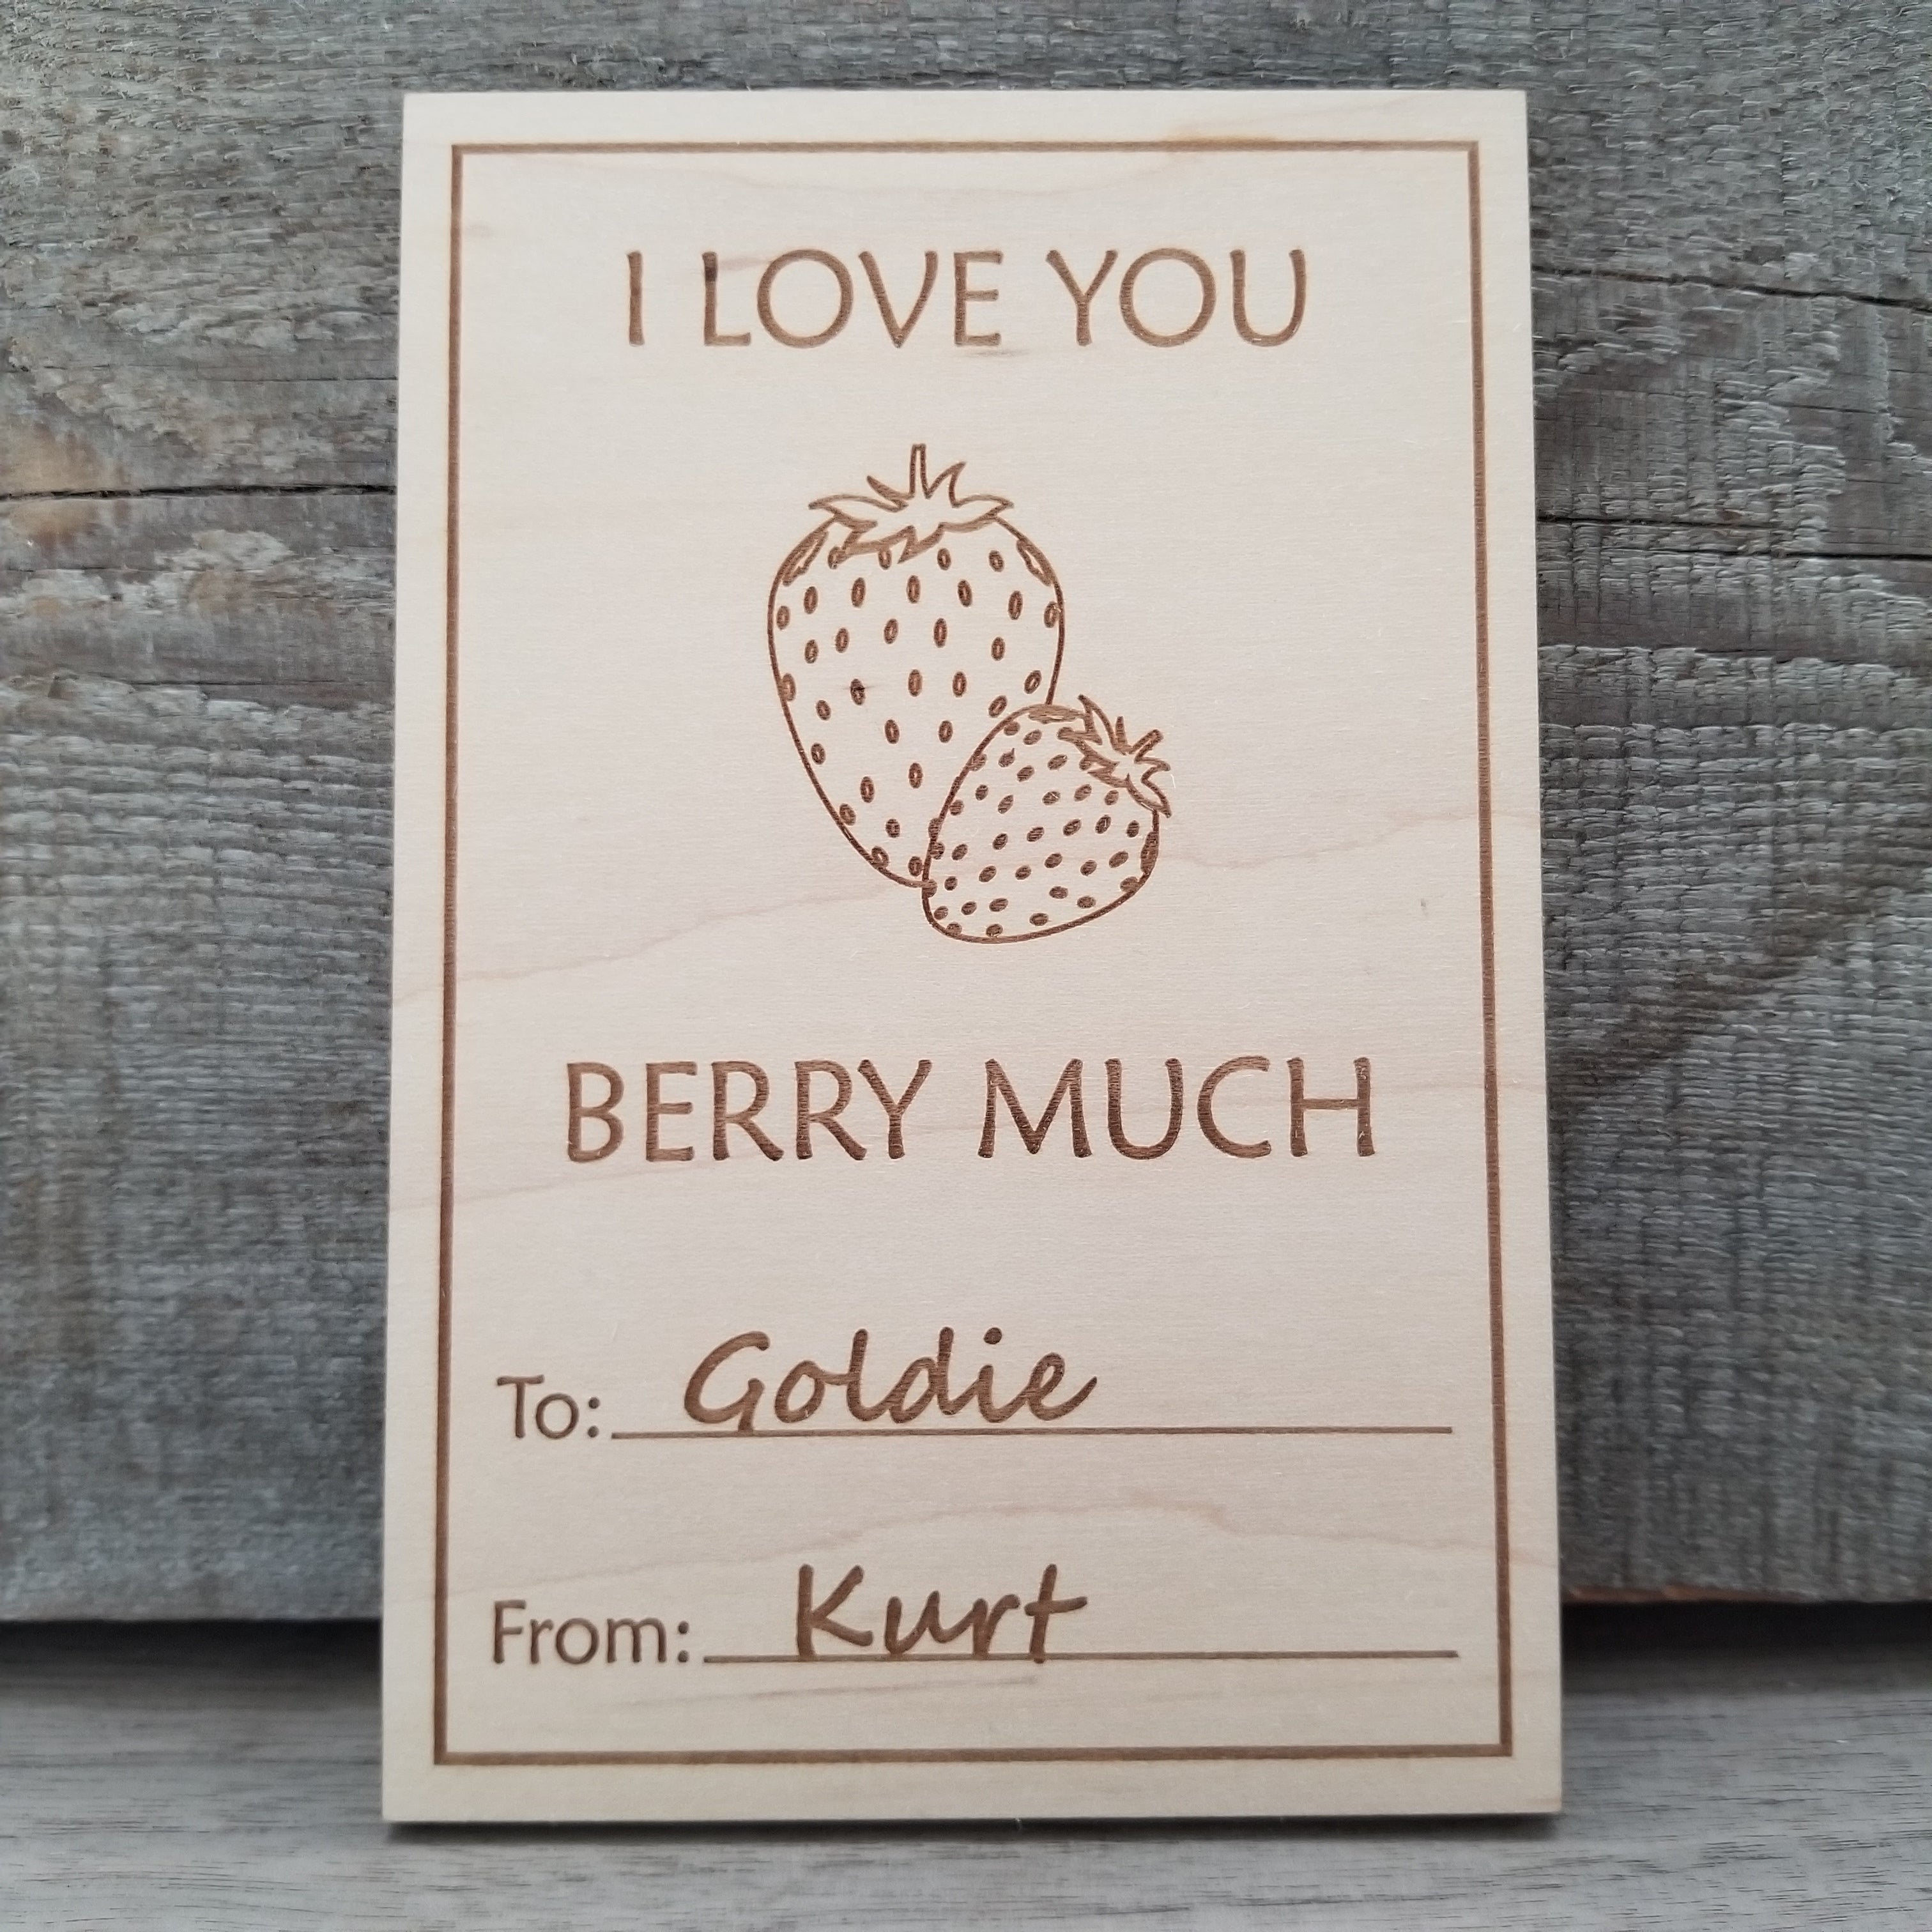 I LOVE YOU
BERRY MUCH
To: Goldie
From: Kurt